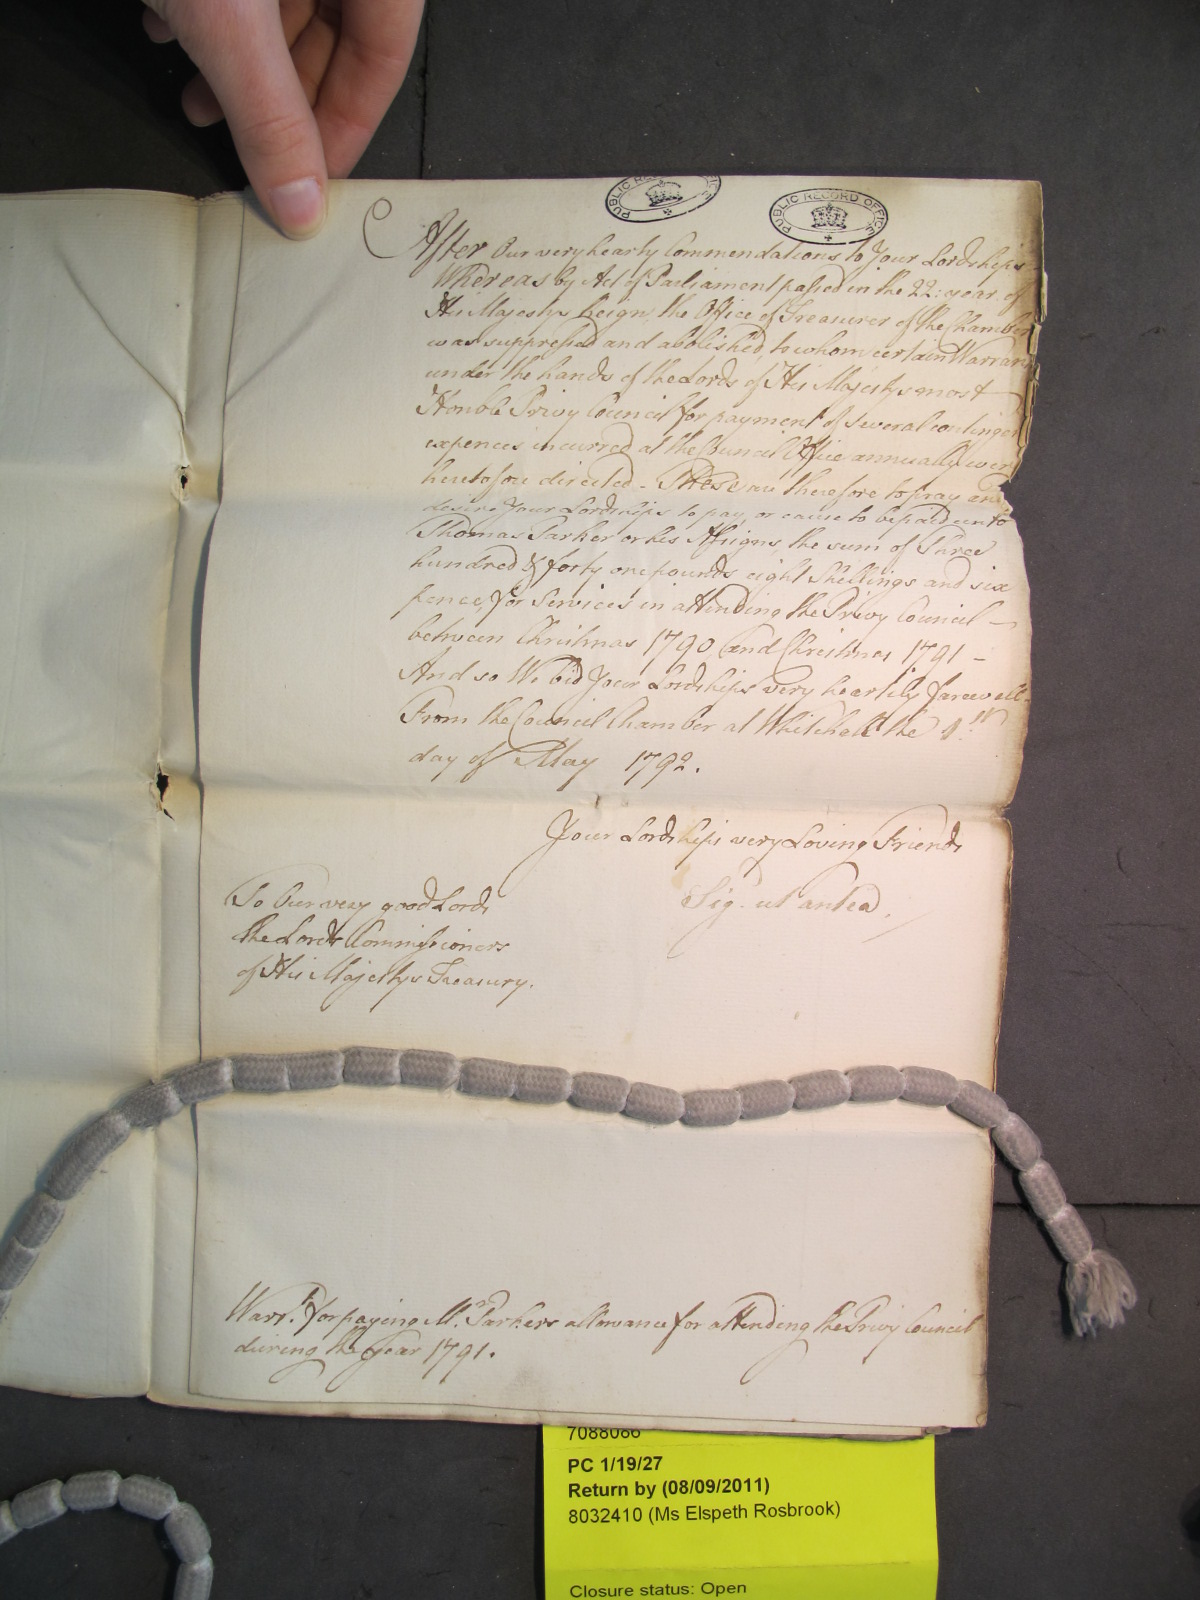 PUBLIC RECORD OFFICE
PUBLIC RECORD OFFICE
After Our very hearty Commendations to Your Lordships
Whereas by Act of Parliament passed in the 22: year of
His Majestys Reign, the Office of Treasurer of the Chamber
was suppressed and abolished, to whom certain Warran
under the hands of the Lords of His Majestys most
Honoble Privy Council for payment of several continge
expences incurred at the Council Office annually wer
heretofore directed - These are therefore to pray and
desire Your Lordships to pay, or cause to be paid unto
Thomas Parker or his Assigns, the sum of Three
hundred & forty one pounds eight Shillings and six
pence, for Services in attending the Privy Council -
between Christmas 1790, and Christmas 1791 -
And so We bid Your Lordships very heartily farewell.
From the Council Chamber at Whitehall the
day of May 1792.
Your Lordships very Loving Friends
Sig. ut antea.
To Our very good Lords
the Lords Commissioners
of His Majestys Treasury.
Warrt. for paying Mr. Parkers allowance for attending the Privy Council
during the Year 1791.
7088086
PC 1/19/27
Return by (08/09/2011)
8032410 (Ms Elspeth Rosbrook)
Closure status: Open